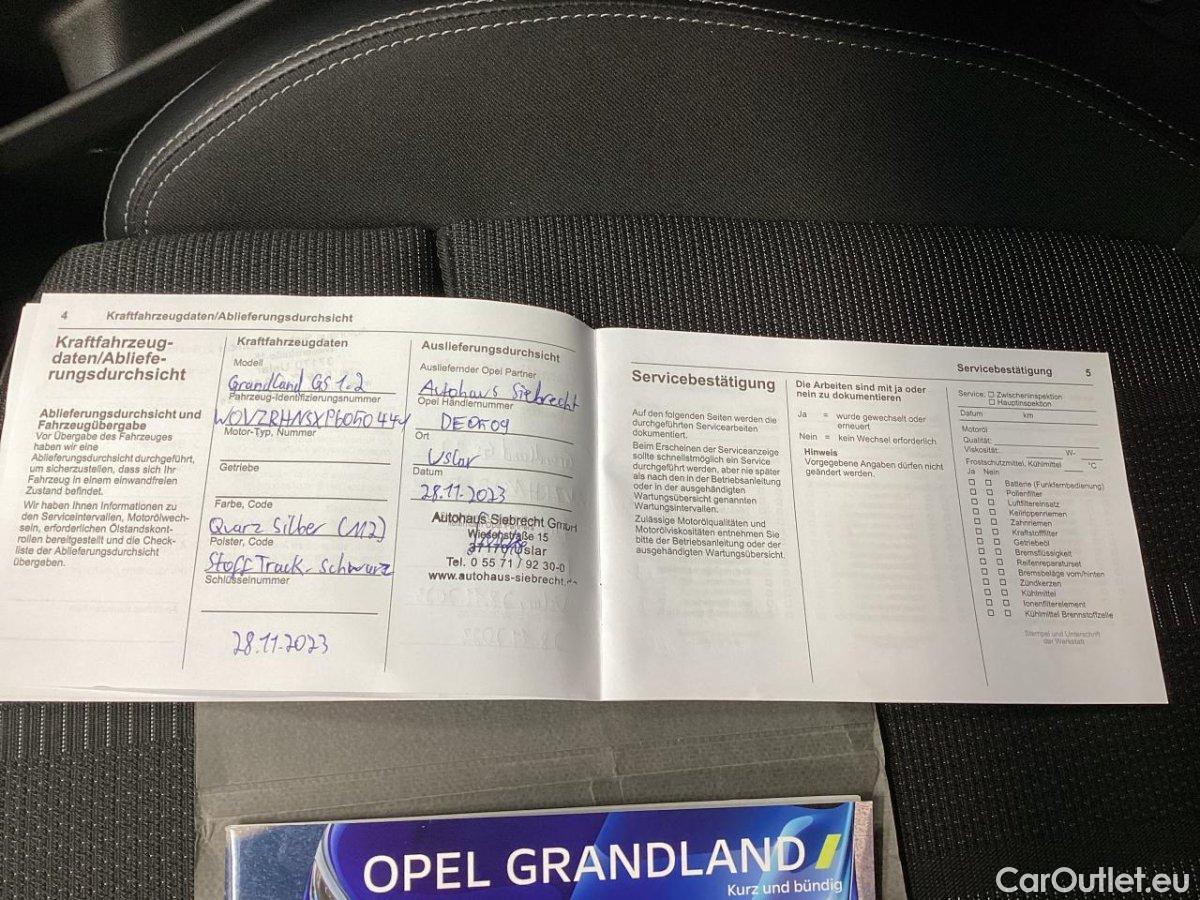 4 Kraftfahrzeugdaten/Ablieferungsdurchsicht
Kraftfahrzeug-
daten/Abliefe-
rungsdurchsicht
Ablieferungsdurchsicht und
Fahrzeugübergabe
Vor Übergabe des Fahrzeuges
haben wir eine
Ablieferungsdurchsicht durchgeführt,
um sicherzustellen, dass sich Ihr
Fahrzeug in einem einwandfreien
Zustand befindet.
Wir haben Ihnen Informationen zu
den Serviceintervallen, Motorölwech-
seln, erforderlichen Ölstandskont-
rollen bereitgestellt und die Check-
liste der Ablieferungsdurchsicht
übergeben.
Kraftfahrzeugdaten
Modell
Grandland GS 1.2
Fahrzeug-Identifizierungsnummer
Motor-Typ, Nummer
Getriebe
Farbe, Code
Quarz Silber (112)
Polster, Code
Stoff Track. schwarz
Schlüsselnummer
28.11.2023
Auslieferungsdurchsicht
Ausliefernder Opel Partner
Autohaus Siebrecht
Opel Händlernummer
DE0K09
Ort
Uslar
Datum
28.11.2023
Autohaus Siebrecht GmbH
Wiesenstraße 15
37170 Uslar
Tel. 0 55 71 / 92 30-0
www.autohaus-siebrecht.de
Servicebestätigung 5
Servicebestätigung
Auf den folgenden Seiten werden die
durchgeführten Servicearbeiten
dokumentiert.
Beim Erscheinen der Serviceanzeige
sollte schnellstmöglich ein Service
durchgeführt werden, aber nie später
als nach den in der Betriebsanleitung
oder in der ausgehändigten
Wartungsübersicht genannten
Wartungsintervallen.
Zulässige Motorölqualitäten und
Motorölviskositäten entnehmen Sie
bitte der Betriebsanleitung oder der
ausgehändigten Wartungsübersicht.
Die Arbeiten sind mit ja oder
nein zu dokumentieren
Ja = wurde gewechselt oder
erneuert
Nein = kein Wechsel erforderlich
Hinweis
Vorgegebene Angaben dürfen nicht
geändert werden.
Service: □ Zwischeninspektion
□ Hauptinspektion
Datum km
Motoröl
Qualität:
Viskosität: W-
Frostschutzmittel, Kühlmittel °C
Ja Nein
□ □ Batterie (Funkfernbedienung)
□ □ Pollenfilter
□ □ Luftfiltereinsatz
□ □ Keilrippenriemen
□ □ Zahnriemen
□ □ Kraftstofffilter
□ □ Getriebeöl
□ □ Bremsflüssigkeit
□ □ Reifenreparaturset
□ □ Bremsbeläge vorn/hinten
□ □ Zündkerzen
□ □ Kühlmittel
□ □ Ionenfilterelement
□ □ Kühlmittel Brennstoffzelle
Stempel und Unterschrift
der Werkstatt
OPEL GRANDLAND
Kurz und bündig
CarOutlet.eu